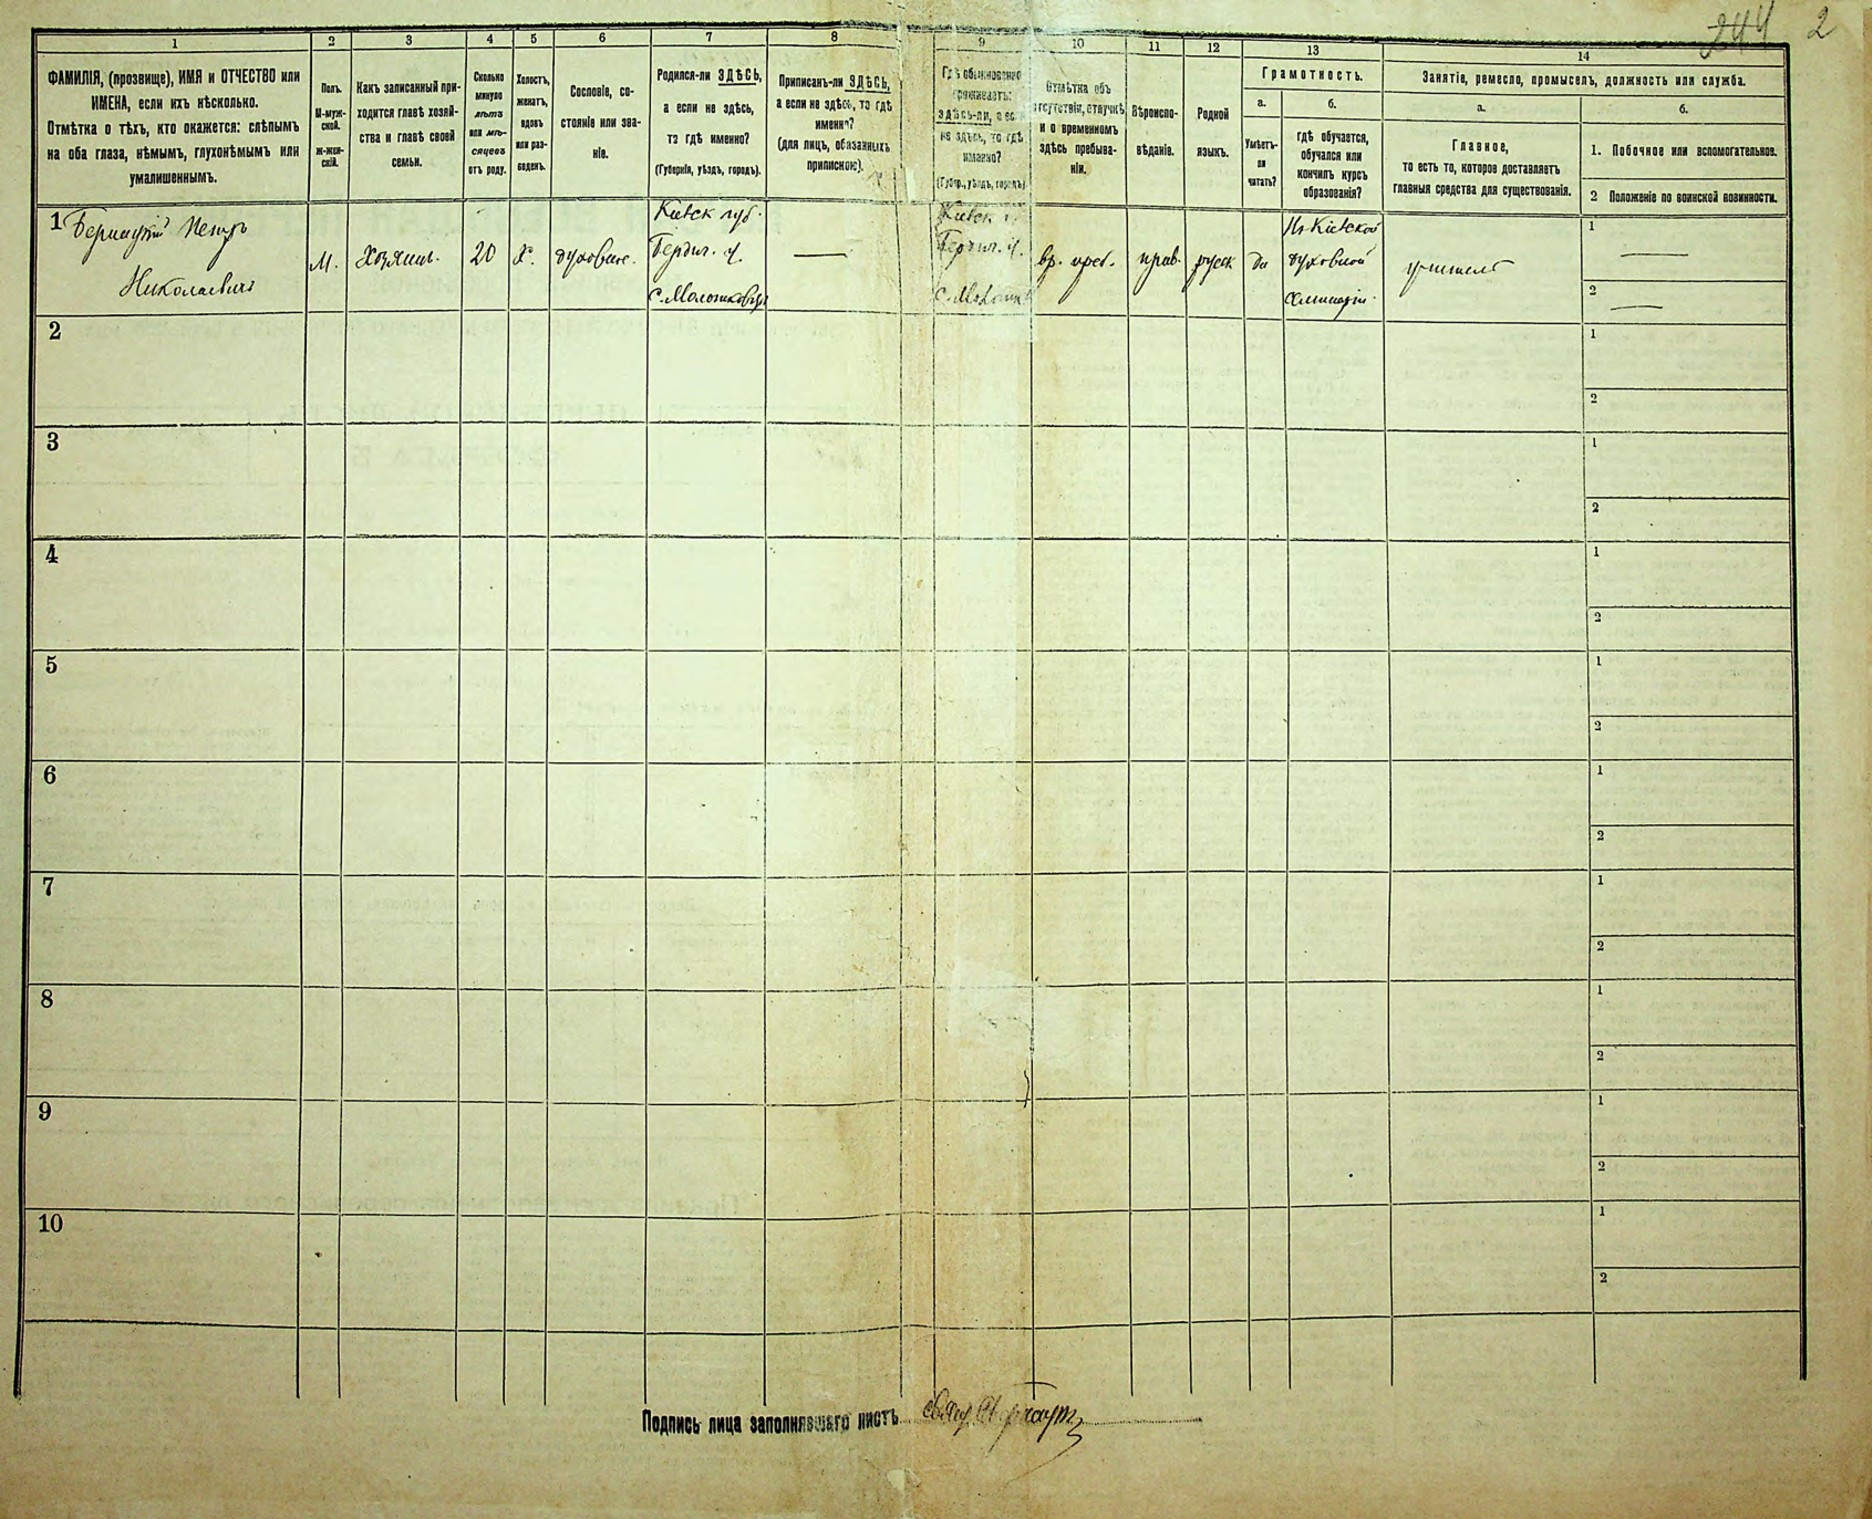 244 2
1 2 3 4 5 6 7 8 9 10 11 12 13 14
ФАМИЛІЯ, (прозвище), ИМЯ и ОТЧЕСТВО или
ИМЕНА, если ихъ нѣсколько.
Отмѣтка о тѣхъ, кто окажется: слѣпымъ
на оба глаза, нѣмымъ, глухонѣмымъ или
умалишеннымъ.
Полъ.
М-муж-
ской.
ж-жен-
скій.
Какъ записанный при-
ходится главѣ хозяй-
ства и главѣ своей
семьи.
Сколько
минуло
лѣтъ
или мѣ-
сяцевъ
отъ роду.
Холостъ,
женатъ,
вдовъ
или раз-
веденъ.
Сословіе, со-
стояніе или зва-
ніе.
Родился-ли ЗДѢСЬ,
а если не здѣсь,
то гдѣ именно?
(Губернія, уѣздъ, городъ).
Приписанъ-ли ЗДѢСЬ,
а если не здѣсь, то гдѣ
именно?
(для лицъ, обязанныхъ
припискою).
Гдѣ обыкновенно
проживаетъ:
ЗДѢСЬ-ли, а если
не здѣсь, то гдѣ
именно?
(Губер., уѣздъ, городъ)
Отмѣтка объ
отсутствіи, отлучкѣ
и о временномъ
здѣсь пребыва-
ніи.
Вѣроиспо-
вѣданіе.
Родной
языкъ.
Грамотность.
а.
Умѣетъ-
ли
читать?
б.
гдѣ обучается,
обучался или
кончилъ курсъ
образованія?
Занятіе, ремесло, промыселъ, должность или служба.
а.
Главное,
то есть то, которое доставляетъ
главныя средства для существованія.
б.
1. Побочное или вспомогательное.
2 Положеніе по воинской повинности.
1
Петръ
Николаевичъ
М.
Хозяинъ.
20
Х.
духовное.
Кіевск губ.
Бердич. у.
—
Кіевск г.
Бердич. у.
вр. преб.
прав.
русск
да
Из Кіевской
духовной
семинаріи.
учитель
1 —
2 —
2
1
2
3
1
2
4
1
2
5
1
2
6
1
2
7
1
2
8
1
2
9
1
2
10
1
2
Подпись лица заполнявшаго листъ